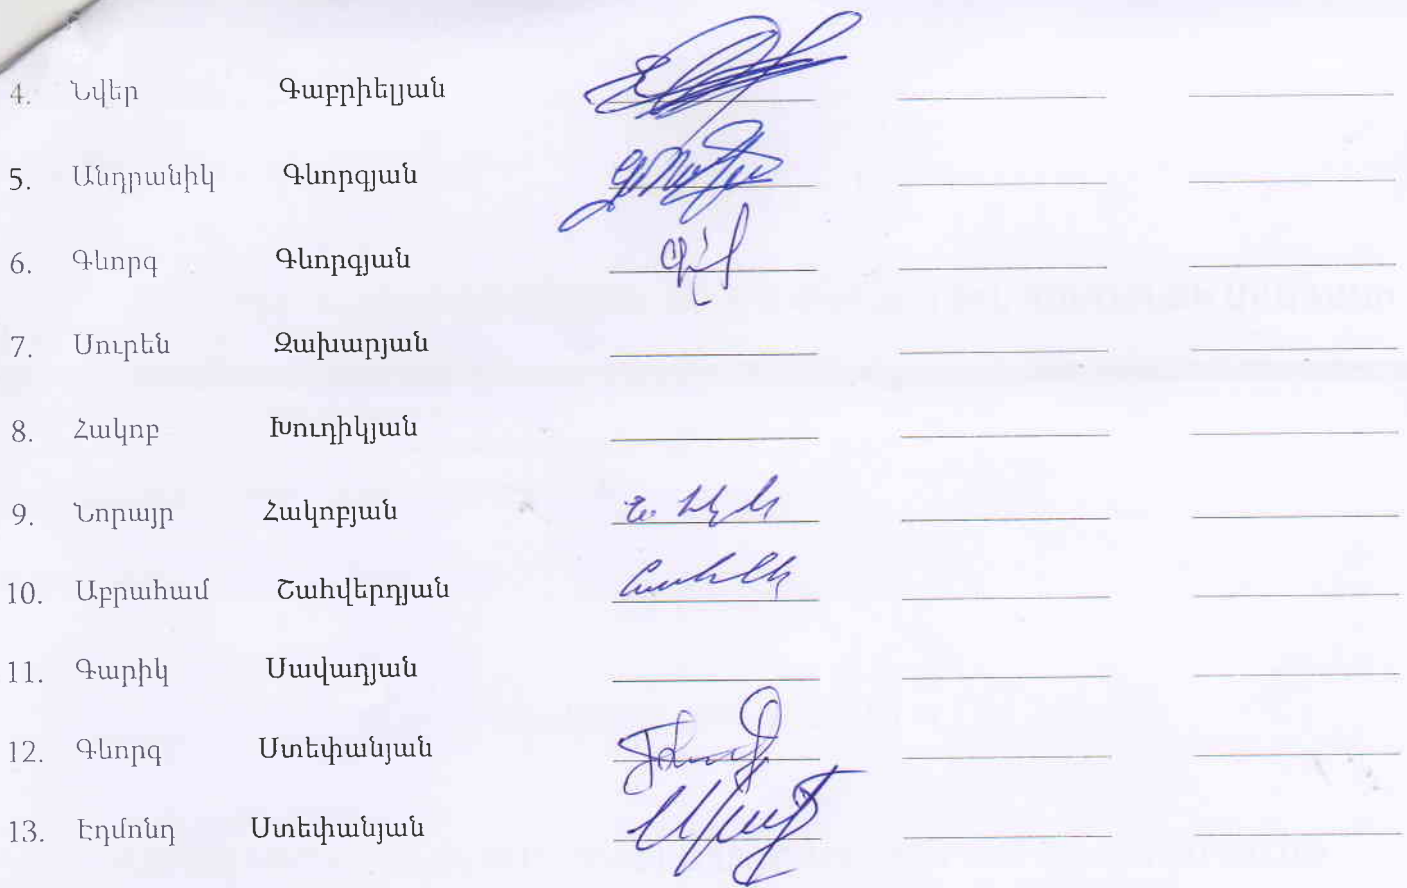 4. Նվեր Գաբրիելյան
5. Անդրանիկ Գևորգյան
6. Գևորգ Գևորգյան
7. Սուրեն Զախարյան
8. Հակոբ Խուդիկյան
9. Նորայր Հակոբյան
10. Աբրահամ Շահվերդյան
11. Գարիկ Սավադյան
12. Գևորգ Ստեփանյան
13. Էդմոնդ Ստեփանյան